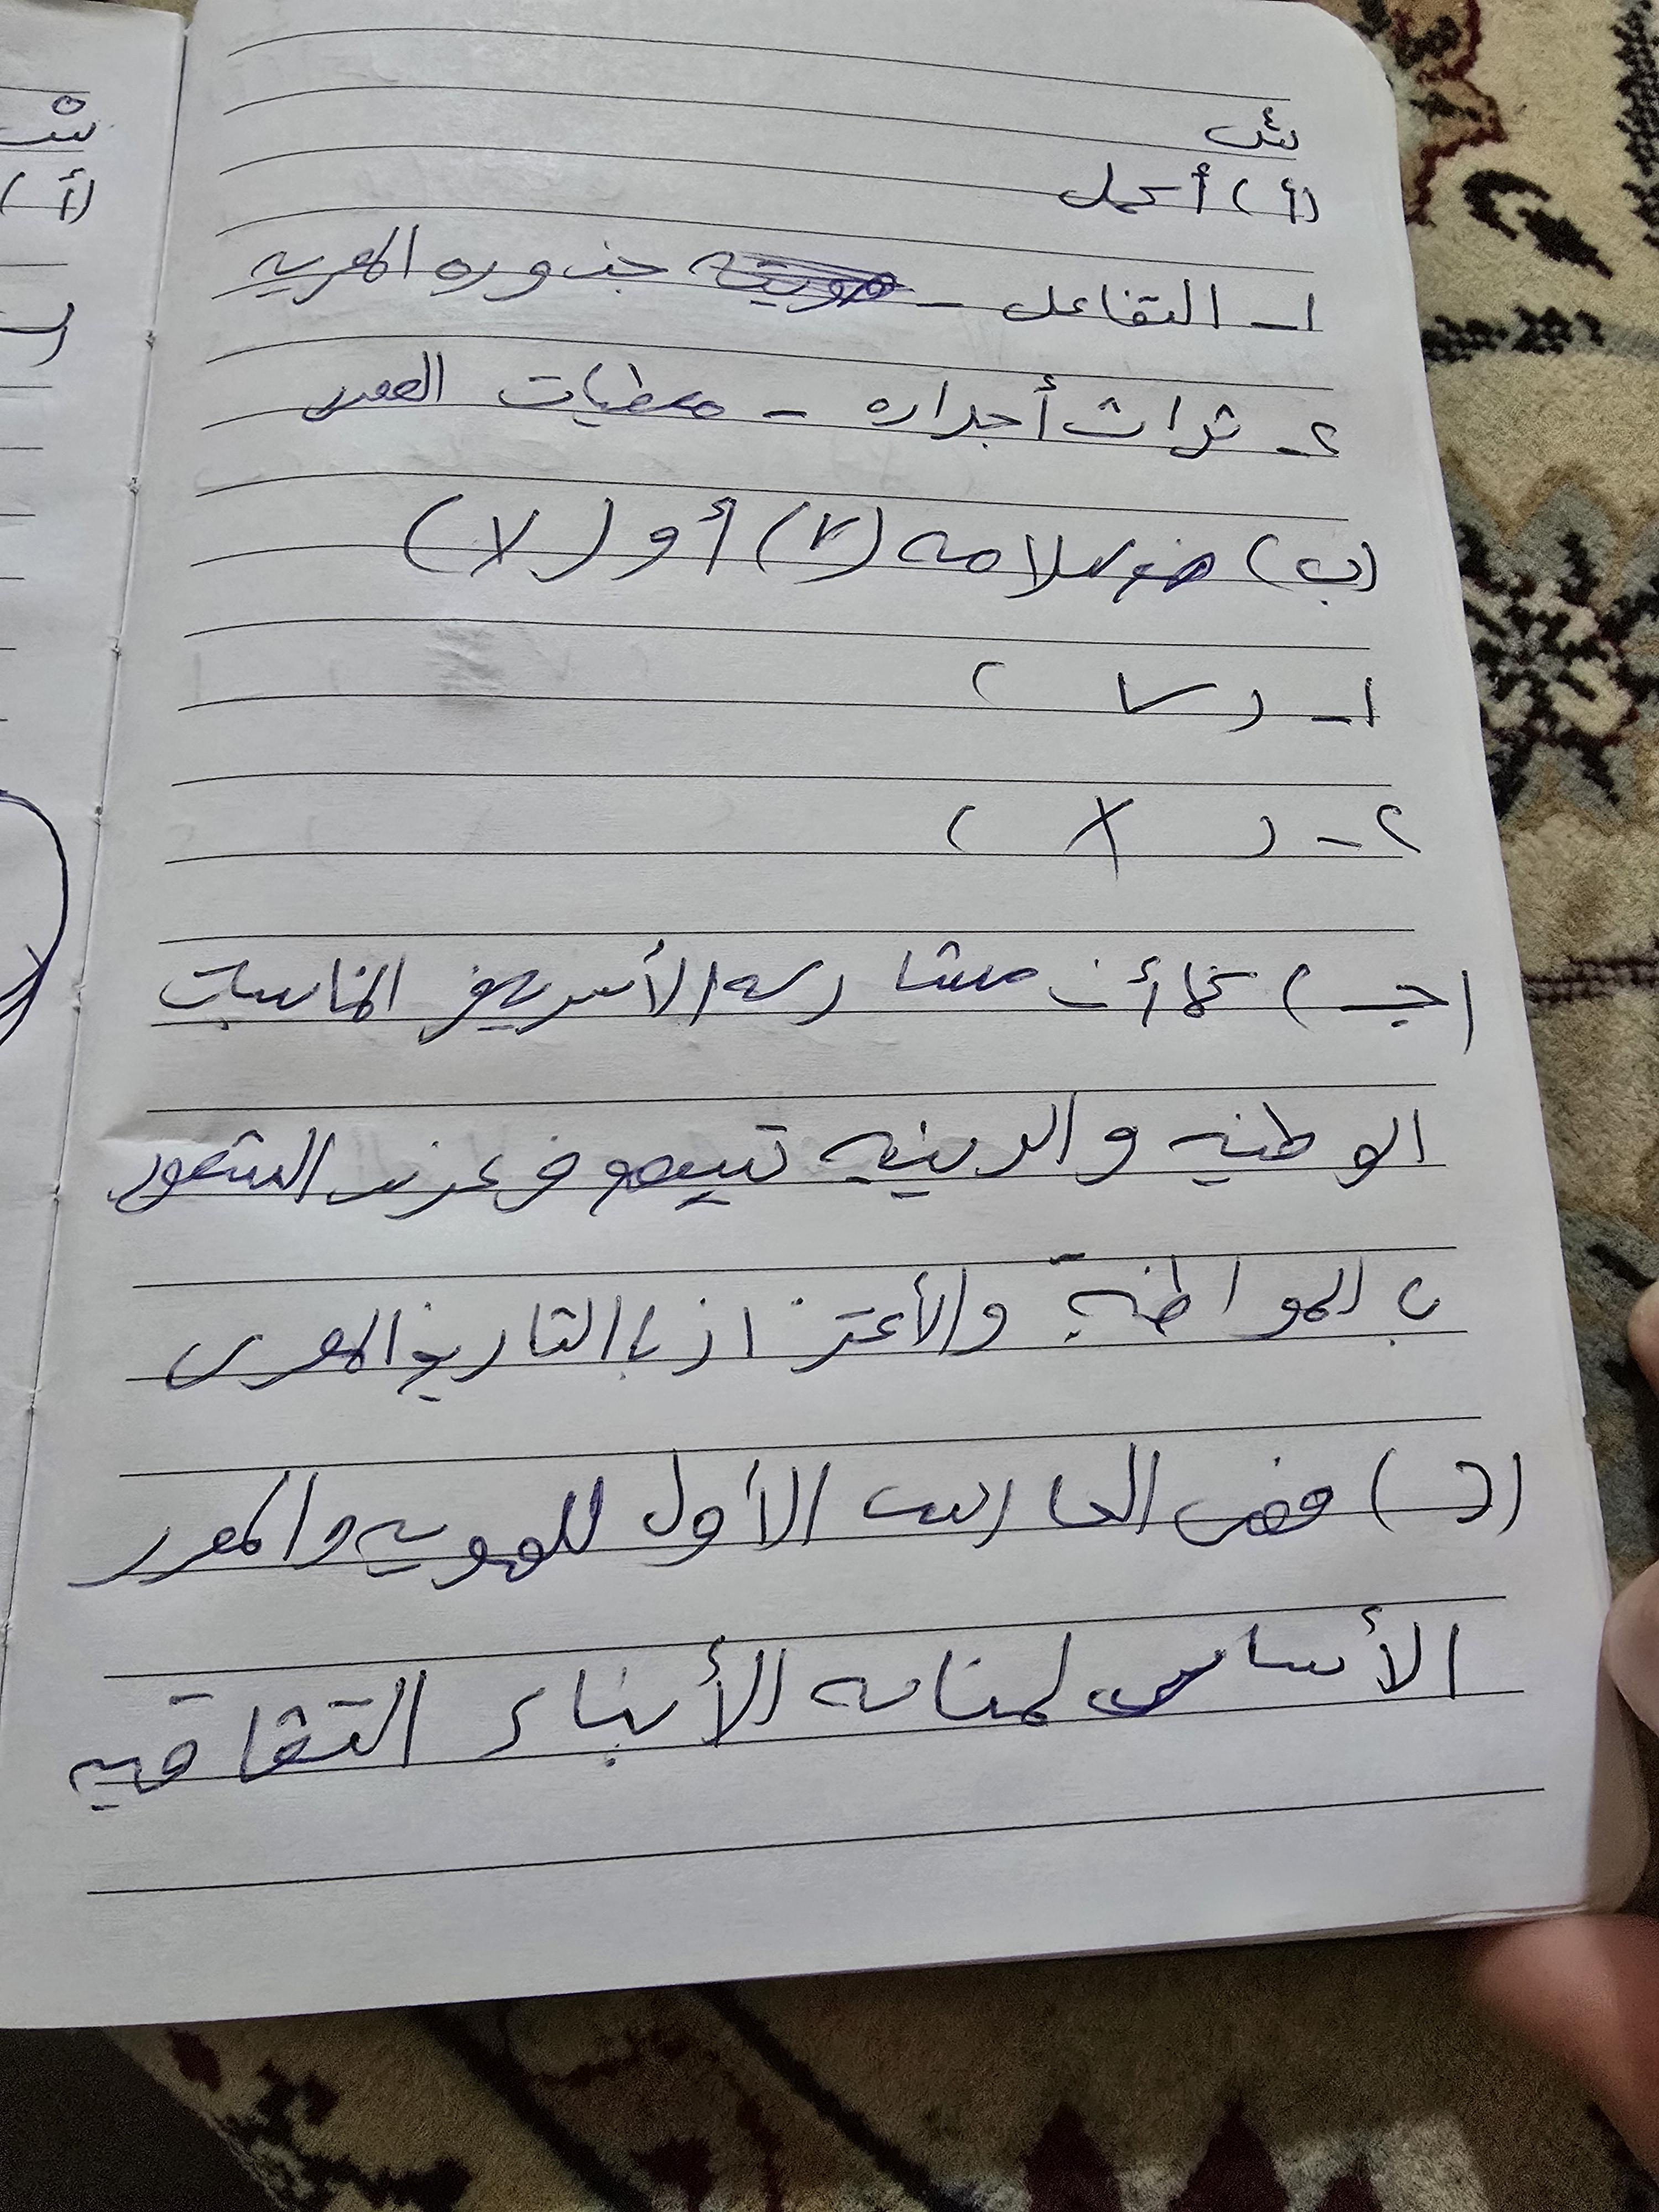 س٤
(أ) أكمل
١- التفاعل - جذوره المصريه
٢- تراث أجداده - معطيات العصر
(ب) ضع علامه (√) أو (X)
١- (√)
٢- (X)
(جـ) كما أن مشاركه الأسر في المناسبات
الوطنيه والدينيه تسهم في عزيز الشعور
ب المواطنة والأعتزاز باالتاريخ المصرى
(د) فهى الحارس الأول للهويه والمصدر
الأساسى لمناعه الأبناء الثقافيه
س٥
(أ)